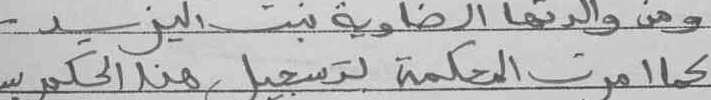 ومن والدتها الضاوية بنت اليزيد -
كما امرت المحكمة بتسجيل هذا الحكم